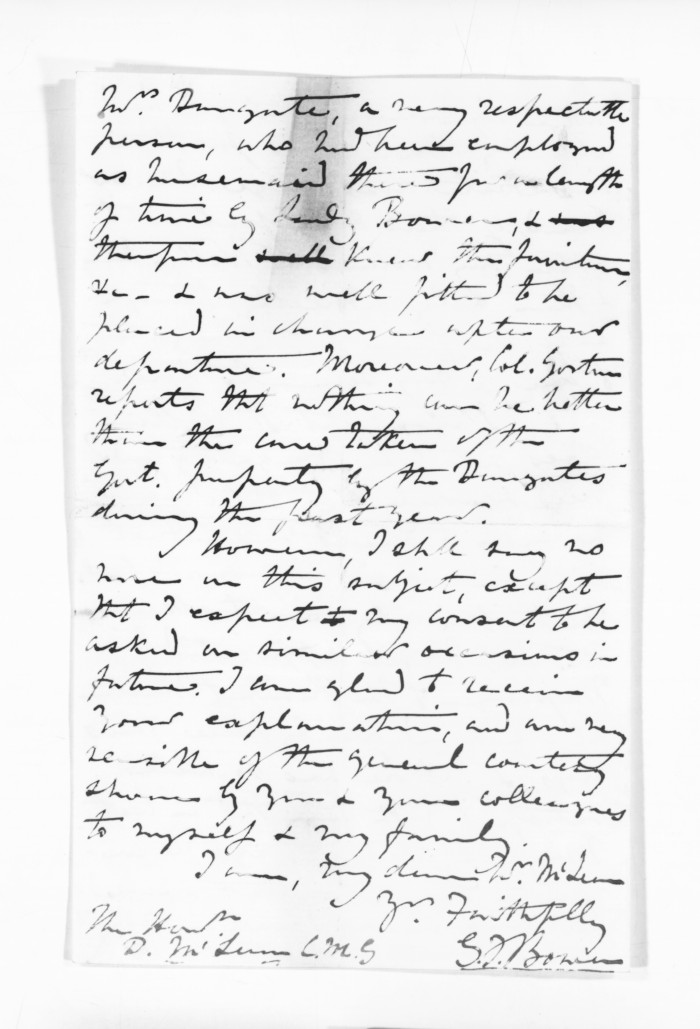 Mrs. Dungate, a very respectable
person, who had been employed
as housemaid there for a length
of time by Lady Bowen, & was
therefore well knew the furniture,
&c - & was well fitted to be
placed in charge after our
departure. Moreover, Col. Gorton
reports tht nothing can be better
than the care taken of the
Govt. property by the Dungates
during the past year.
However, I shll say no
more on this subject, except
tht I expect my consent to be
asked on similar occasions in
future. I am glad to receive
your explanation, and am very
sensible of the general courtesy
shown by you & your colleagues
to myself & my family.
I am, my dear Mr. McLean
Yr. Faithfully
G.F. Bowen
The Honble
D. McLean C.M.G